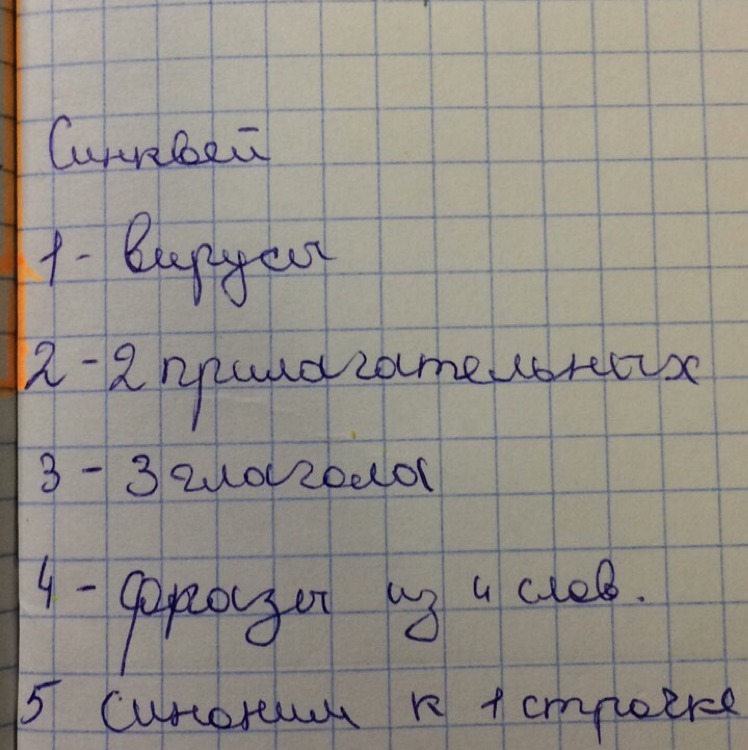 Синквей
1 - вирусы
2 - 2 прилагательных
3 - 3 глагола
4 - фразы из 4 слов.
5 синоним к 1 строчке